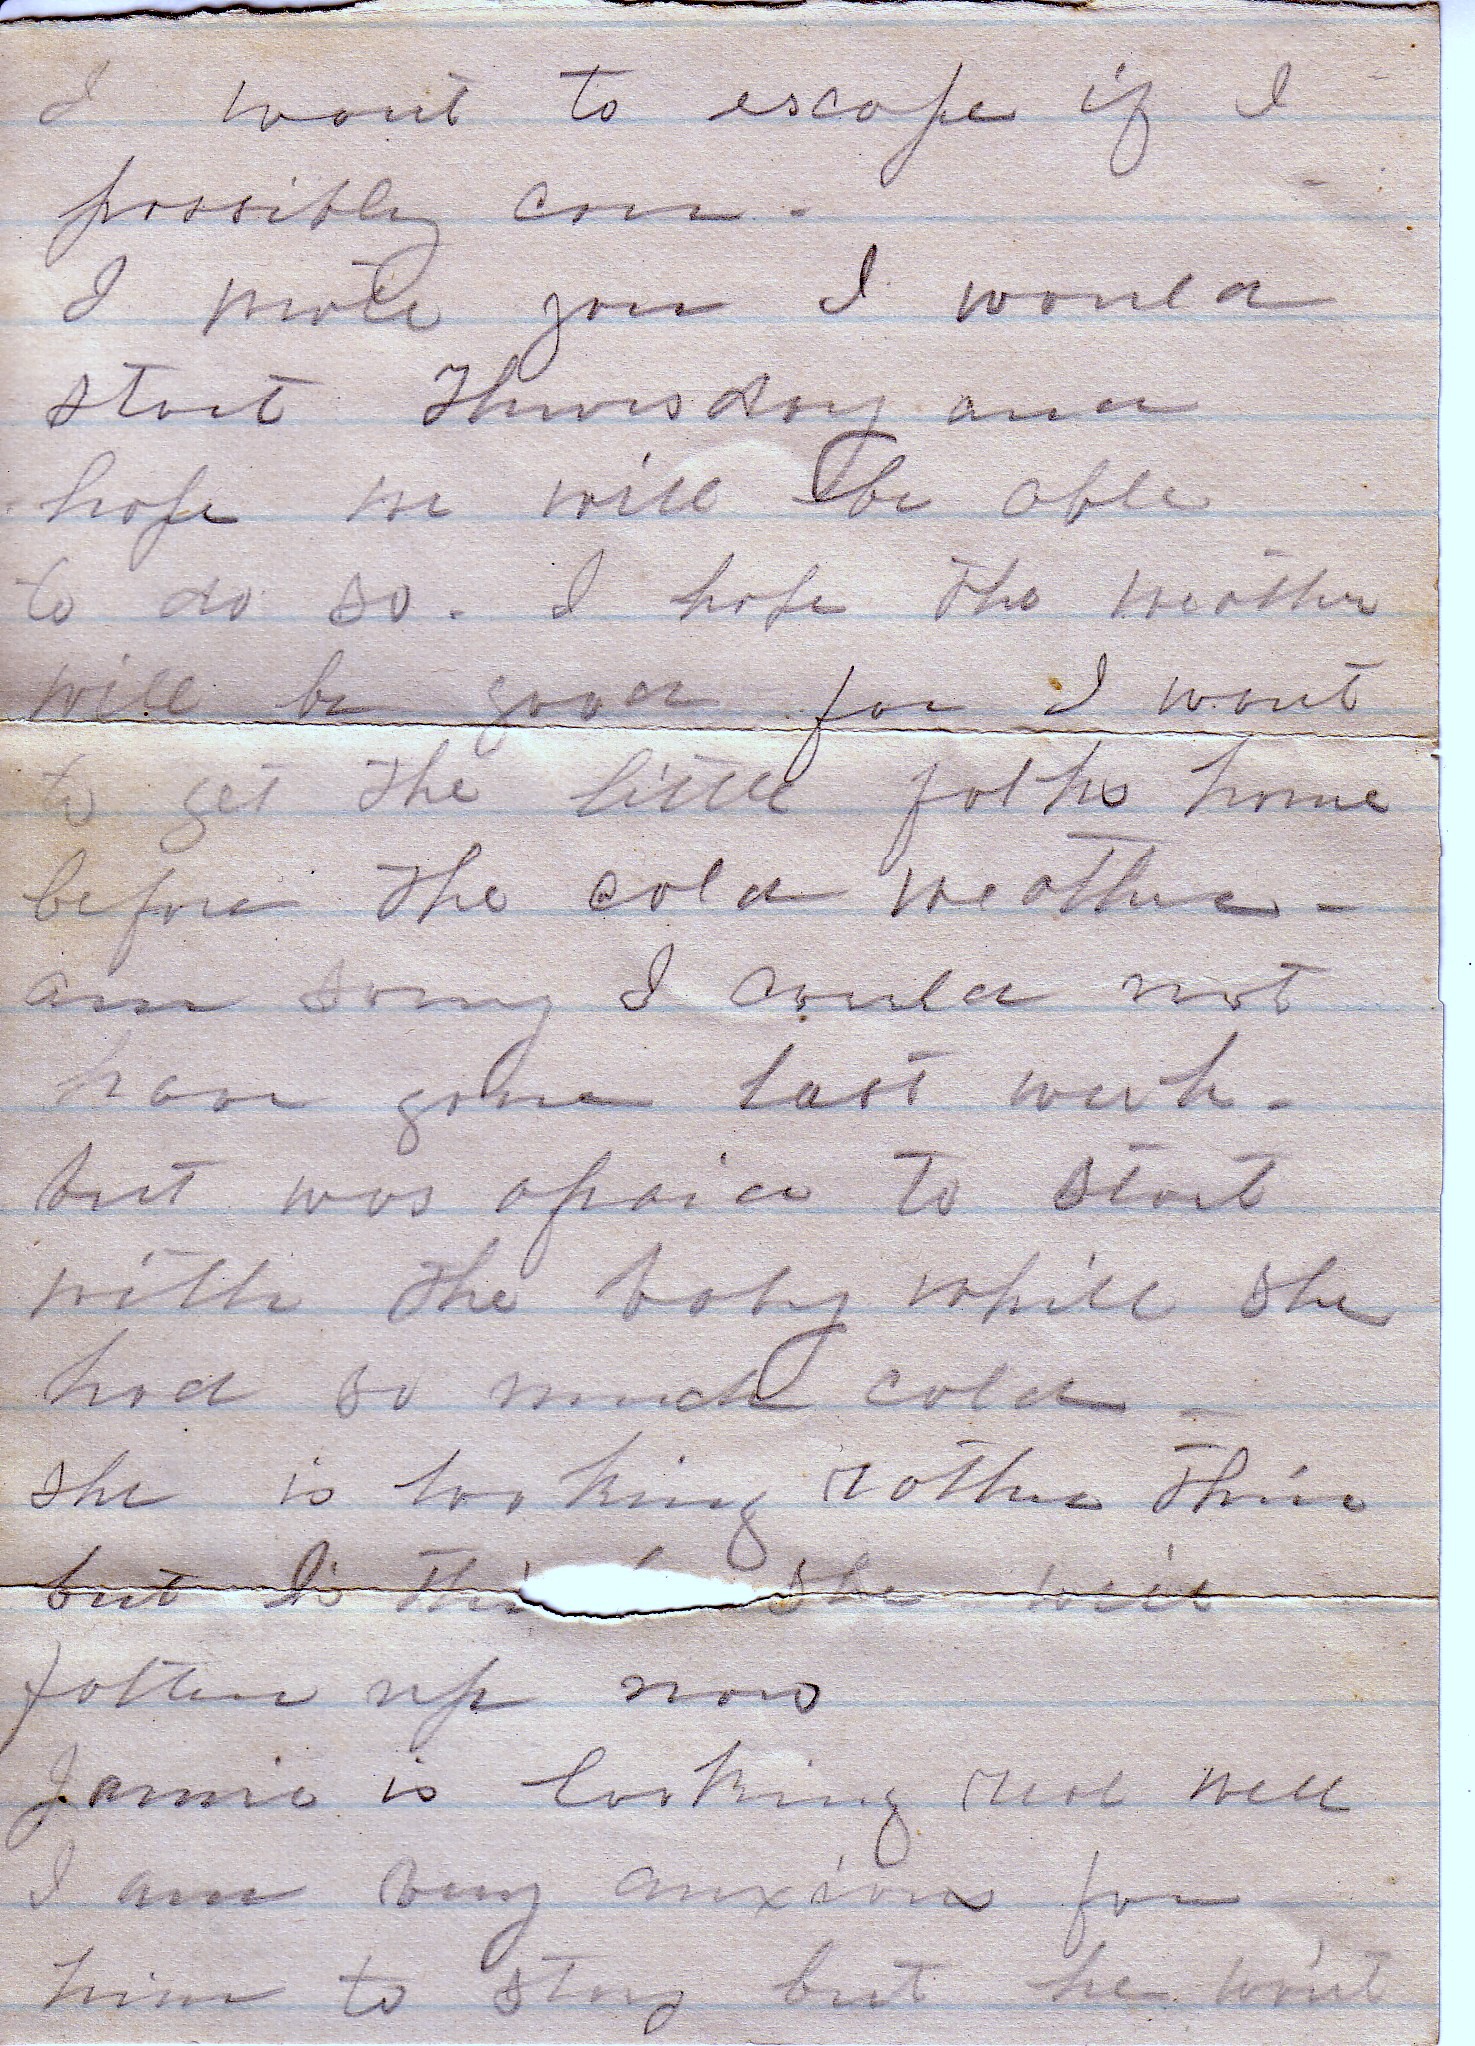 I want to escape if I
possibly can -
I wrote you I would
start Thursday and
hope we will be able
to do so. I hope the weather
will be good for I want
to get the little folks home
before the cold weather -
am sorry I could not
have gone last week -
but was afraid to start
with the baby while she
had so much cold -
she is looking rather thin
but I thi she will
fatten up now
Jamie is looking real well
I am very anxious for
him to stay but he won't